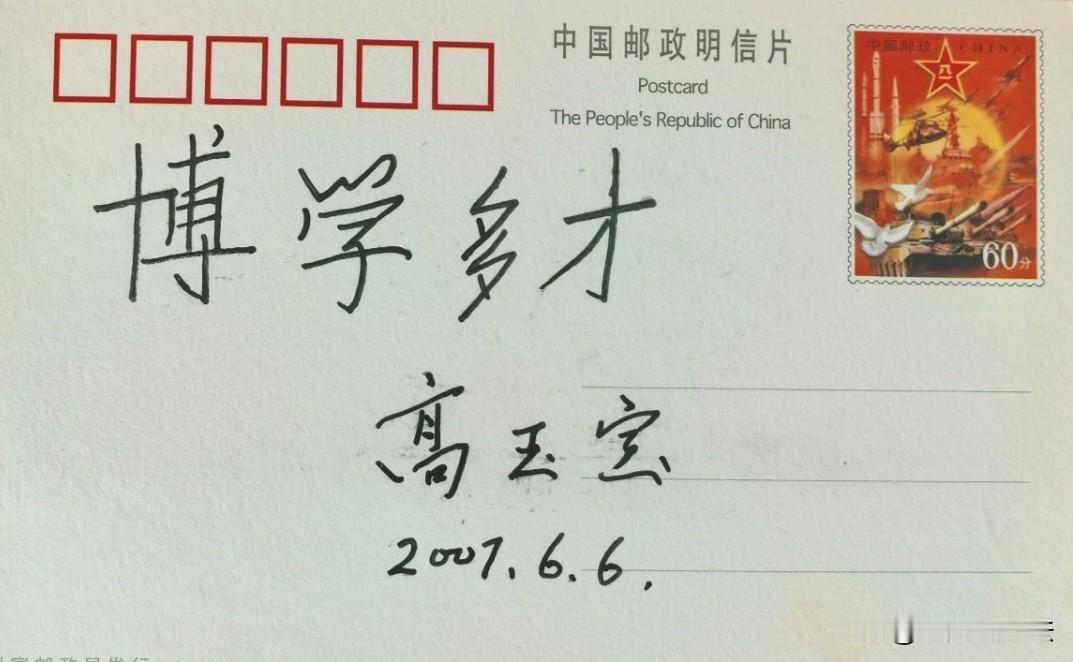 中国邮政明信片
Postcard
The People's Republic of China
中国邮政 CHINA
八一
60分
博学多才
高玉宝
2007.6.6.